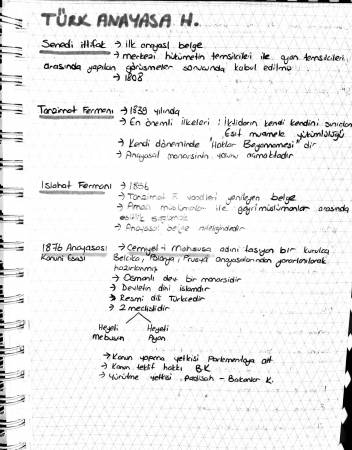 TÜRK ANAYASA H.
Senedi ittifak → ilk anayasl belge
→ merkezi hükümetin temsilcileri ile ayan temsilcileri
arasında yapılan görüşmeler sonucunda kabul edilmiş
→ 1808
Tanzimat Fermanı → 1839 yılında
→ En önemli ilkeleri : İktidarın kendi kendini sınırlaması
Eşit muamele yükümlülüğü
→ Kendi döneminde "Haklar Beyannamesi" dir
→ Anayasal monarşinin yolunu açmaktadır
Islahat Fermanı → 1856
→ Tanzimat F. vaadleri yenileyen belge
→ Amaç müslümanlar ile gayrimüslümanlar arasında
eşitlik sağlamak
→ Anayasal belge niteliğindedir
1876 Anayasası → Cemiyet-i Mahsusa adını taşıyan bir kurulca
Kanuni Esasi Belçika, Polonya, Prusya anayasalarından yararlanılarak
hazırlanmış
→ Osmanlı dev. bir monarşidir
→ Devletin dini islamdır
→ Resmi dili Türkçedir
→ 2 meclislidir
Heyeti Heyeti
Mebusan Ayan
→ Kanun yapma yetkisi Parlementoya ait
→ Kanun teklif hakkı B.K
→ Yürütme yetkisi Padişah - Bakanlar K.